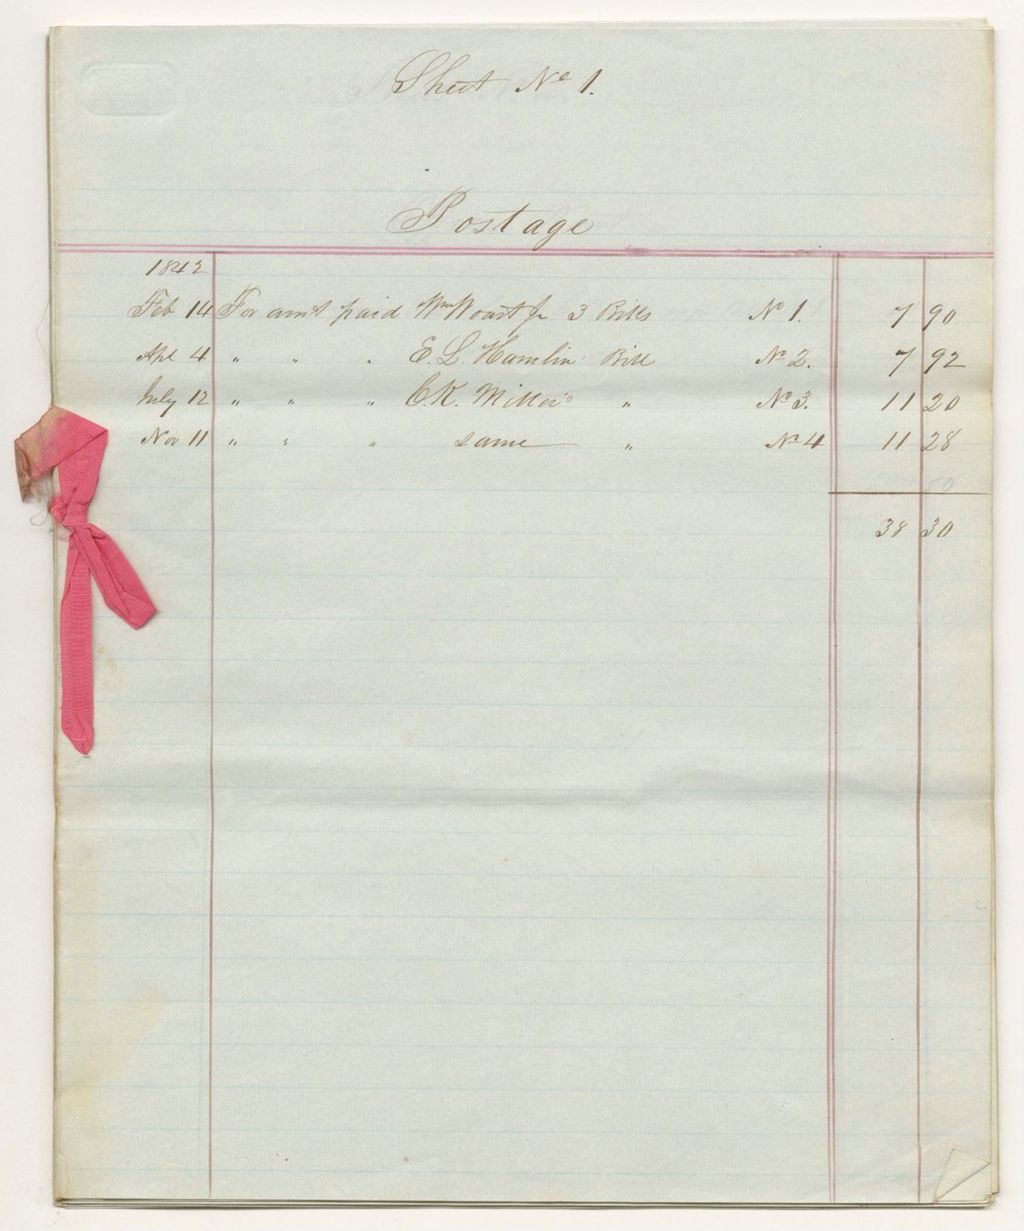 Sheet No 1.
Postage
1842
Feb 14 For amt paid Wm Woart Jr 3 Bills No 1. 7 90
Apl 4 " " " E. L. Hamlin Bill No 2. 7 92
July 12 " " " C.K. Miller's " No 3. 11 20
Nov 11 " " " same " No 4 11 28
38 30